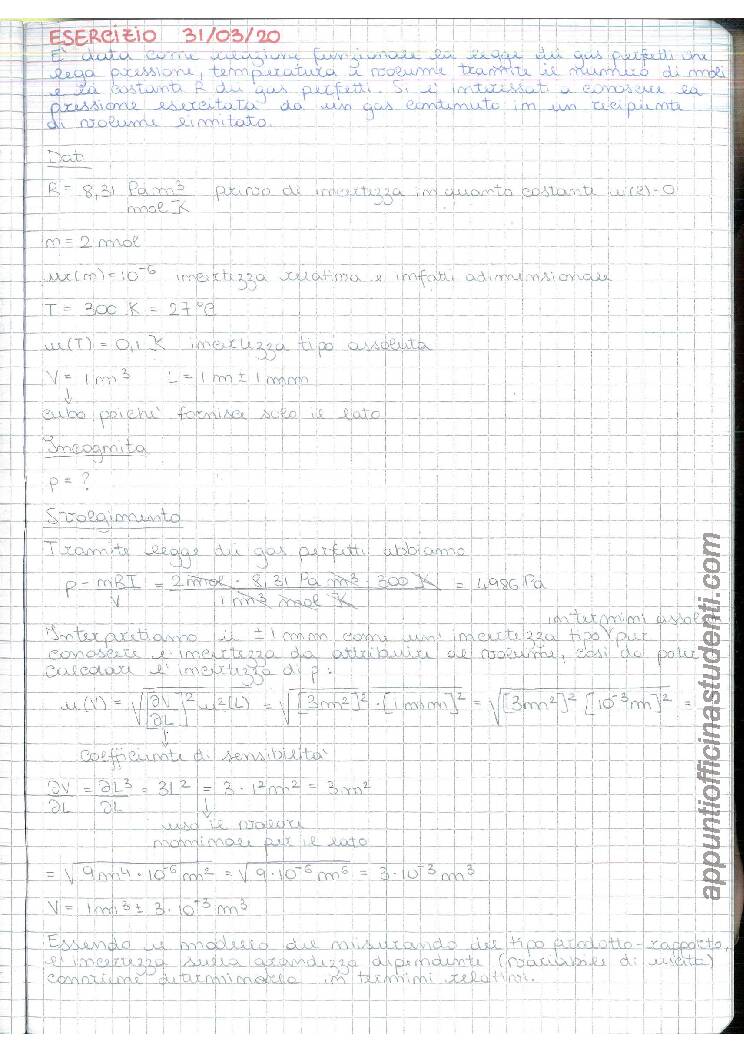 ESERCIZIO 31/03/20
È data come relazione funzionale la legge dei gas perfetti che
lega pressione, temperatura e volume tramite il numero di moli
e la costante R dei gas perfetti. Si è interessati a conoscere la
pressione esercitata da un gas contenuto in un recipiente
di volume limitato.
Dati
R = 8,31 Pa m³ / mol K privo di incertezza in quanto costante u(R)=0
n = 2 mol
ur(n) = 10⁻⁶ incertezza relativa e infatti adimensionale
T = 300 K = 27°C
u(T) = 0,1 K incertezza tipo assoluta
V = 1 m³ L = 1 m ± 1 mm
↓
cubo poiché fornisce solo il lato
Incognita
p = ?
Svolgimento
Tramite legge dei gas perfetti abbiamo
p = nRT / V = 2 mol · 8,31 Pa m³ · 300 K / 1 m³ mol K = 4986 Pa
in termini assoluti
Interpretiamo il ±1 mm come un' incertezza tipo ∨ per
conoscere l'incertezza da attribuire al volume, così da poter
calcolare l'incertezza di p:
u(V) = √[∂V/∂L]² u²(L) = √[3m²]² · [1mm]² = √[3m²]² · [10⁻³m]² =
↓
coefficiente di sensibilità
∂V/∂L = ∂L³/∂L = 3L² = 3 · 1² m² = 3 m²
↓
uso il valore
nominale per il lato
= √9m⁴ · 10⁻⁶ m² = √9 · 10⁻⁶ m⁶ = 3 · 10⁻³ m³
V = 1m³ ± 3 · 10⁻³ m³
Essendo il modello del misurando del tipo prodotto-rapporto,
l'incertezza sulla grandezza dipendente (variabile di uscita)
conviene determinarla in termini relativi.
appuntiofficinastudenti.com